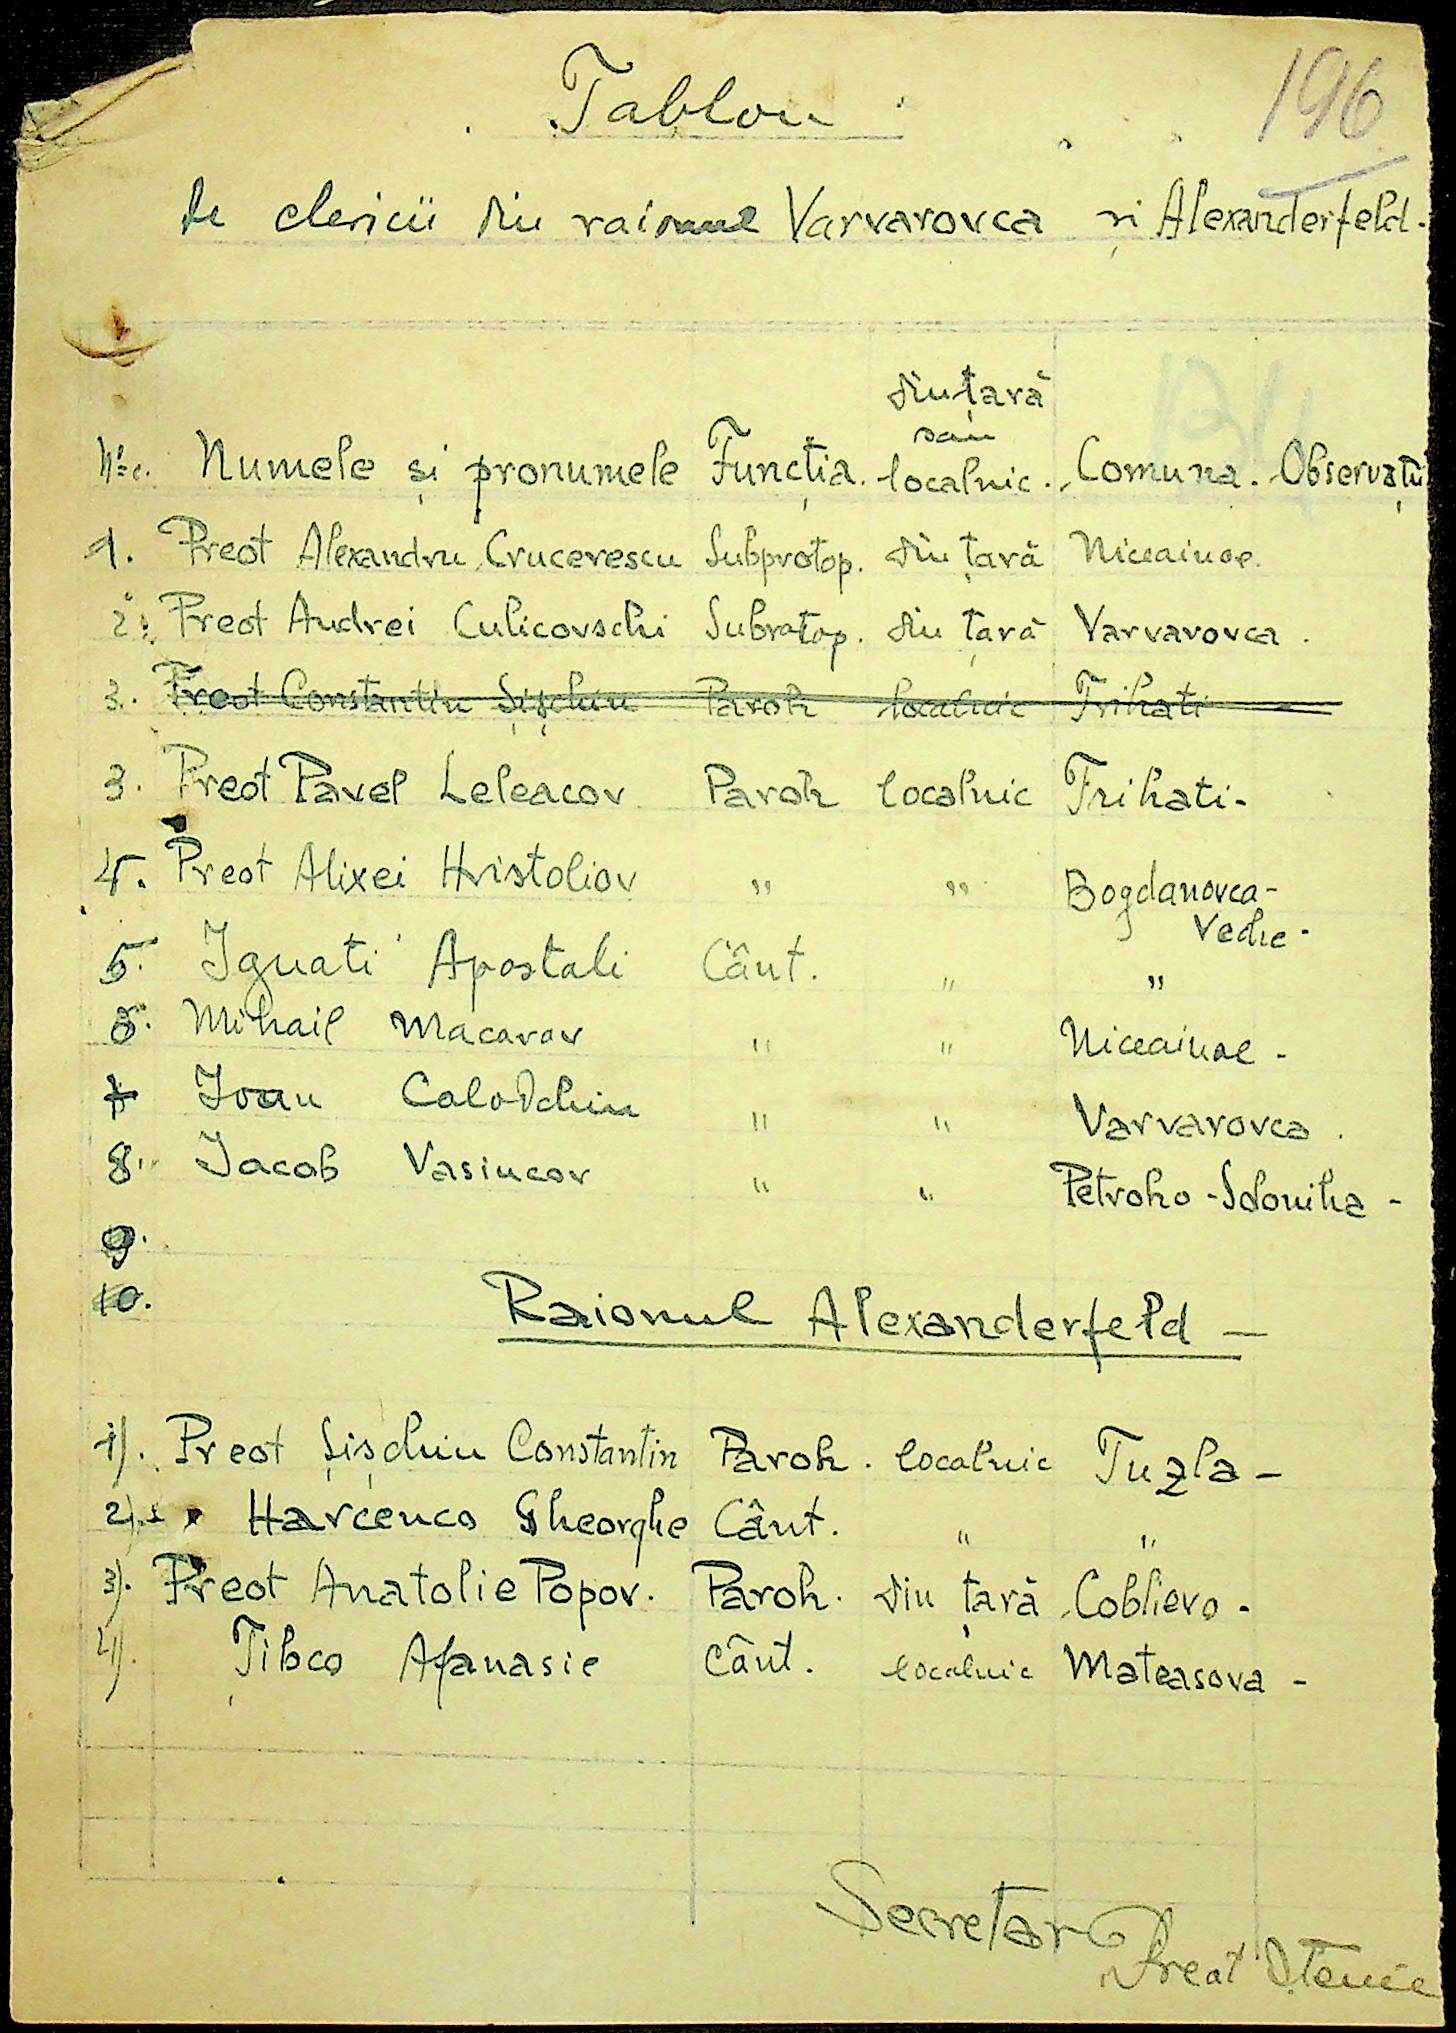 Tablou
196
de clericii din raionul Varvarovca și Alexanderfeld.
din țară
sau
Nº c. Numele și pronumele Funcția. localnic. Comuna. Observații
1. Preot Alexandru Crucerescu Subprotop. din țară Niceainoe.
2. Preot Andrei Culicovschi Subrotop. din țară Varvarovca.
3. Preot Constantin Șișchin Paroh localnic Trihati
3. Preot Pavel Leleacov Paroh localnic Trihati-
4. Preot Alixei Hristoliov " " Bogdanovca-
Veche-
5. Ignati Apostali Cânt. " "
6. Mihail Macarov " " Niceainoe -
7 Ioan Calodchin " " Varvarovca.
8. Iacob Vasiucov " " Petroho-Sdoniha -
9.
10.
Raionul Alexanderfeld -
1). Preot Șișchin Constantin Paroh. localnic Tuzla -
2). Harcenco Gheorghe Cânt. " "
3). Preot Anatolie Popov. Paroh. din țară Coblievo -
4). Țibco Afanasie Cânt. localnic Mateasova -
Secretar
Preot